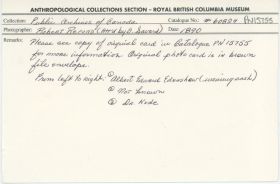 ANTHROPOLOGICAL COLLECTIONS SECTION - ROYAL BRITISH COLUMBIA MUSEUM
Collection: Public Archives of Canada Catalogue No. PN15755
Photographer: Robert Date: 1890
Remarks: Please see copy of original card in Catalogue PN 15755
for more information. Original photo card is in brown
file envelope.
From left to right: ① Albert Edward Edenshaw (wearing sash)
② Not known
③ Dr. Kode